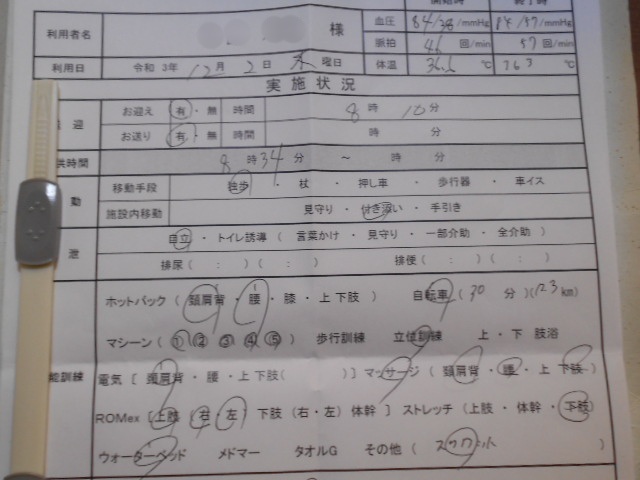 開始時 終了時
利用者名 様 血圧 84/38/mmHg 84/57/mmHg
脈拍 46 回/min 57 回/min
利用日 令和 3年 12月 2日 木曜日 体温 36.6 ℃ ℃
実施状況
迎 お迎え 有・無 時間 8 時 10 分
お送り 有・無 時間 時 分
供時間 8 時 34 分 ~ 時 分
動 移動手段 独歩 ・ 杖 ・ 押し車 ・ 歩行器 ・ 車イス
施設内移動 見守り ・ 付き添い ・ 手引き
泄 自立 ・ トイレ誘導 ( 言葉かけ ・ 見守り ・ 一部介助 ・ 全介助 )
排尿 ( : ) ( : ) 排便 ( : ) ( : )
ホットパック ( 頸肩背 ・ 腰 ・ 膝 ・ 上 下肢 ) 自転車 ( 30 分 ) ( km)
マシーン ( ① ② ③ ④ ⑤ ) 歩行訓練 立位訓練 上 ・ 下 肢浴
能訓練 電気 [ 頸肩背 ・ 腰 ・ 上 下肢( )] マッサージ ( 頸肩背 ・ 腰 ・ 上 下肢 )
ROMex [ 上肢 (右・左) 下肢 (右・左) 体幹 ] ストレッチ (上肢 ・ 体幹 ・ 下肢)
ウォーターベッド メドマー タオルG その他 ( スクワット )